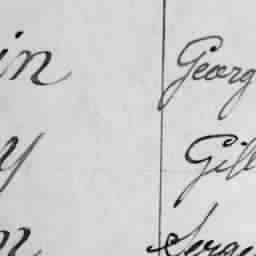 in Georg
y Gill
n Serge